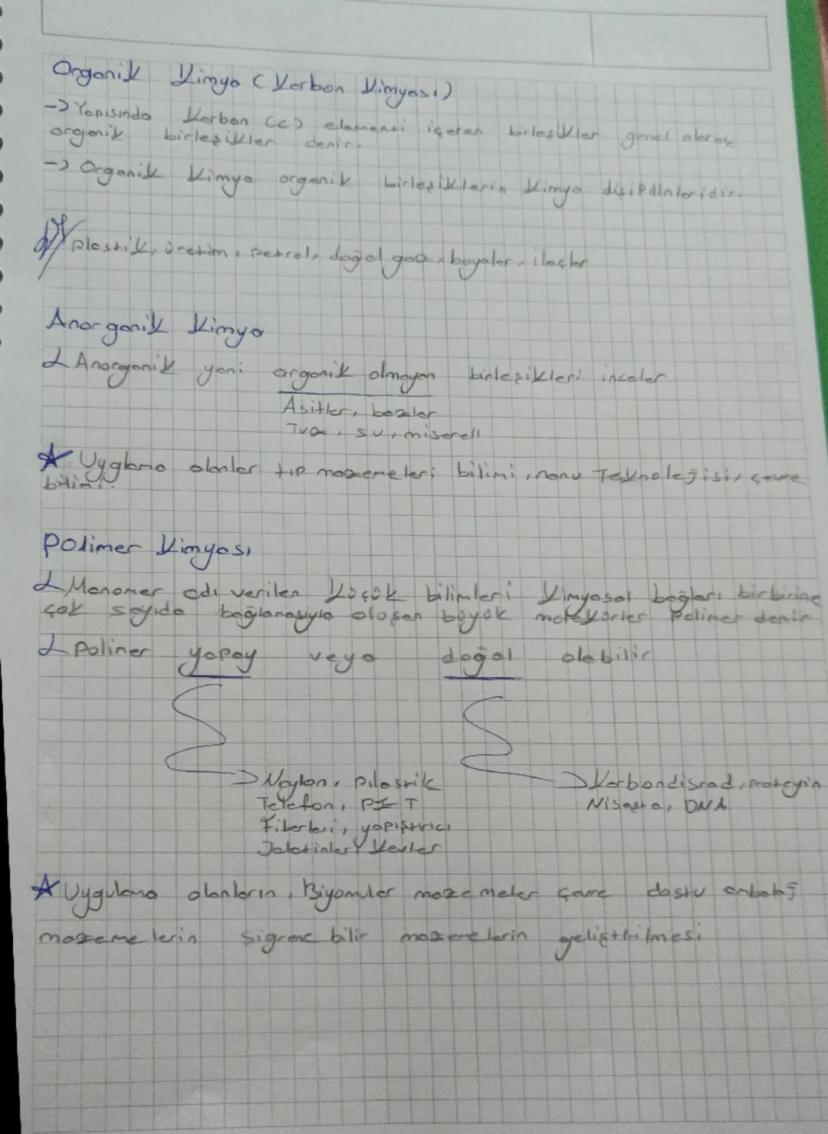 Organik Kimya (Karbon Kimyası)
-> Yapısında Karbon (C) elemanai içeren birleşikler genel olarak
organik birleşikler denir.
-> Organik Kimya organik birleşiklerin Kimya disiplinleridir.
plastik, üretim, petrol, doğal gaz, boyalar, ilaçlar
Anorganik Kimya
Anorganik yani organik olmayan birleşikleri inceler
Asitler, bazlar
Tuz, su, minerell
★ Uyglama alanlar tıp mazemeleri bilimi, nanu Teknolejisi, çevre
bilimi
Polimer Kimyası
Monomer adı verilen Küçük bilimleri Kimyasal bağları birbirine
çok sayıda bağlanasıyla oluşan büyük molekürler Polimer denir
Polimer yapay veya doğal olabilir
Naylon, pilastik
Karbondisrad, proteyin
Telefon, PET
Nisasta, DNA
Fiberleri, yapıştırıcı
Jelatinler Kevler
★ Uygulama alanların, Biyomuler mazemeler çevre dostu
mazemelerin bilir mazemelerin geliştirilmesi